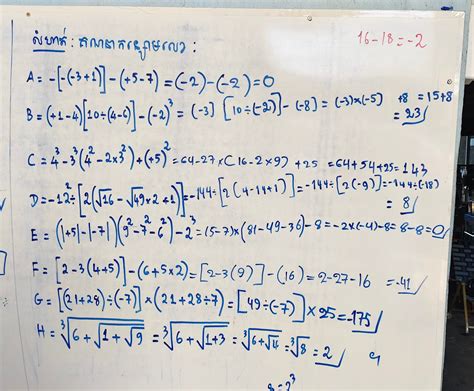 លំហាត់ : គណនាកន្សោមលេខ :
16-18=-2
A = -[-(-3+1)]-(+5-7)=(-2)-(-2)=0
B = (+1-4)[10÷(4-6)]-(-2)³ = (-3) [10÷(-2)]-(-8) = (-3)×(-5) +8 = 15+8
= 23
C = 4³-3³(4²-2×3²)+(+5)² = 64-27×(16-2×9)+25 = 64+54+25=143
D = -12²÷[2(√16 - √49×2+1)]=-144÷[2(4-14+1)]=-144÷[2(-9)]=-144÷(-18)
= 8
E = (|+5|-|-7|)(9²-7²-6²)-2³=(5-7)×(81-49-36)-8=-2×(-4)-8=8-8=0
F = [2-3(4+5)]-(6+5×2)=[2-3(9)]-(16)=2-27-16 = -41
G = [(21+28)÷(-7)]×(21+28÷7)=[49÷(-7)]×25=-175
H = ³√6+√1+√9 = ³√6+√1+3 = ³√6+√4 = ³√8 = 2
8=2³